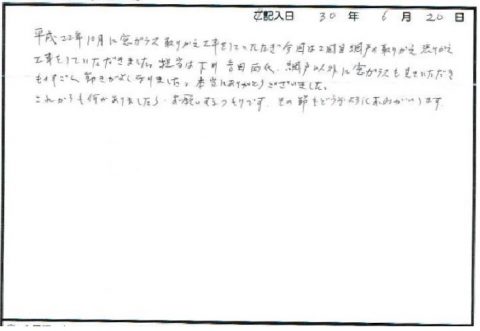 ご記入日 30 年 6 月 20 日
平成22年10月に窓ガラス取りかえ工事をしていただき今回は2回目網戸の取りかえ張りかえ
工事をしていただきました。担当は下川 吉田両氏、網戸以外に窓ガラスも見ていただき
ものすごく動きがよくなりました。本当にありがとうございました。
これからも何かありましたら お願いするつもりです。その節もどうぞよろしくおねがいします